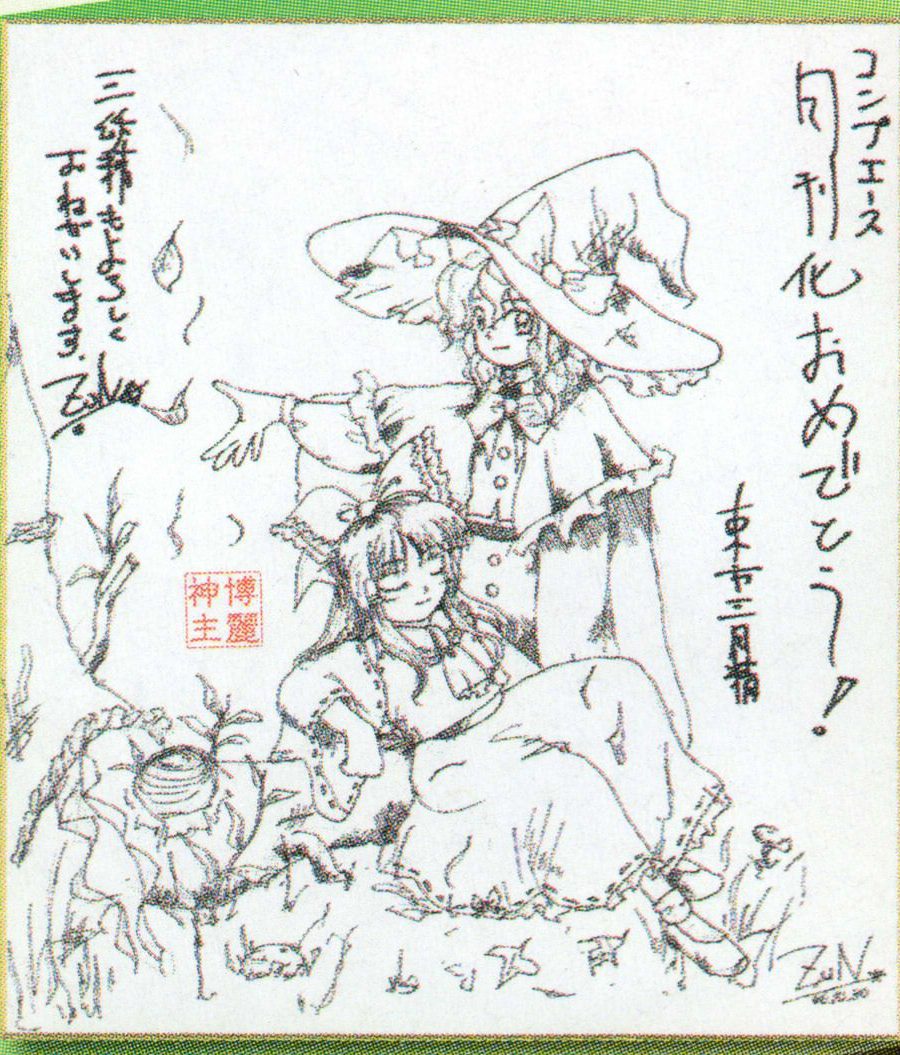 コンプエース
月刊化おめでとう!
東方三月精
三妖精もよろしく
おねがいします。
ZUN
博麗
神主
ZUN